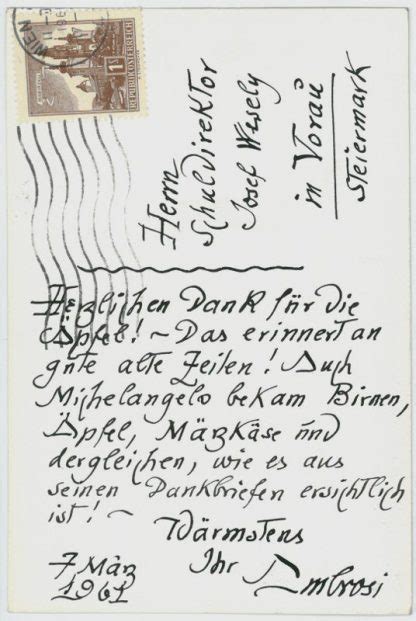 WIEN
1S
REPUBLIK ÖSTERREICH
Herrn
Schuldirektor
Josef Wesely
in Vorau
Steiermark
Herzlichen Dank für die
Äpfel! ~ Das erinnert an
gute alte Zeiten! Auch
Michelangelo bekam Birnen,
Äpfel, Märzkäse und
dergleichen, wie es aus
seinen Dankbriefen ersichtlich
ist! ~
Wärmstens
Ihr Ambrosi
7 März
1961